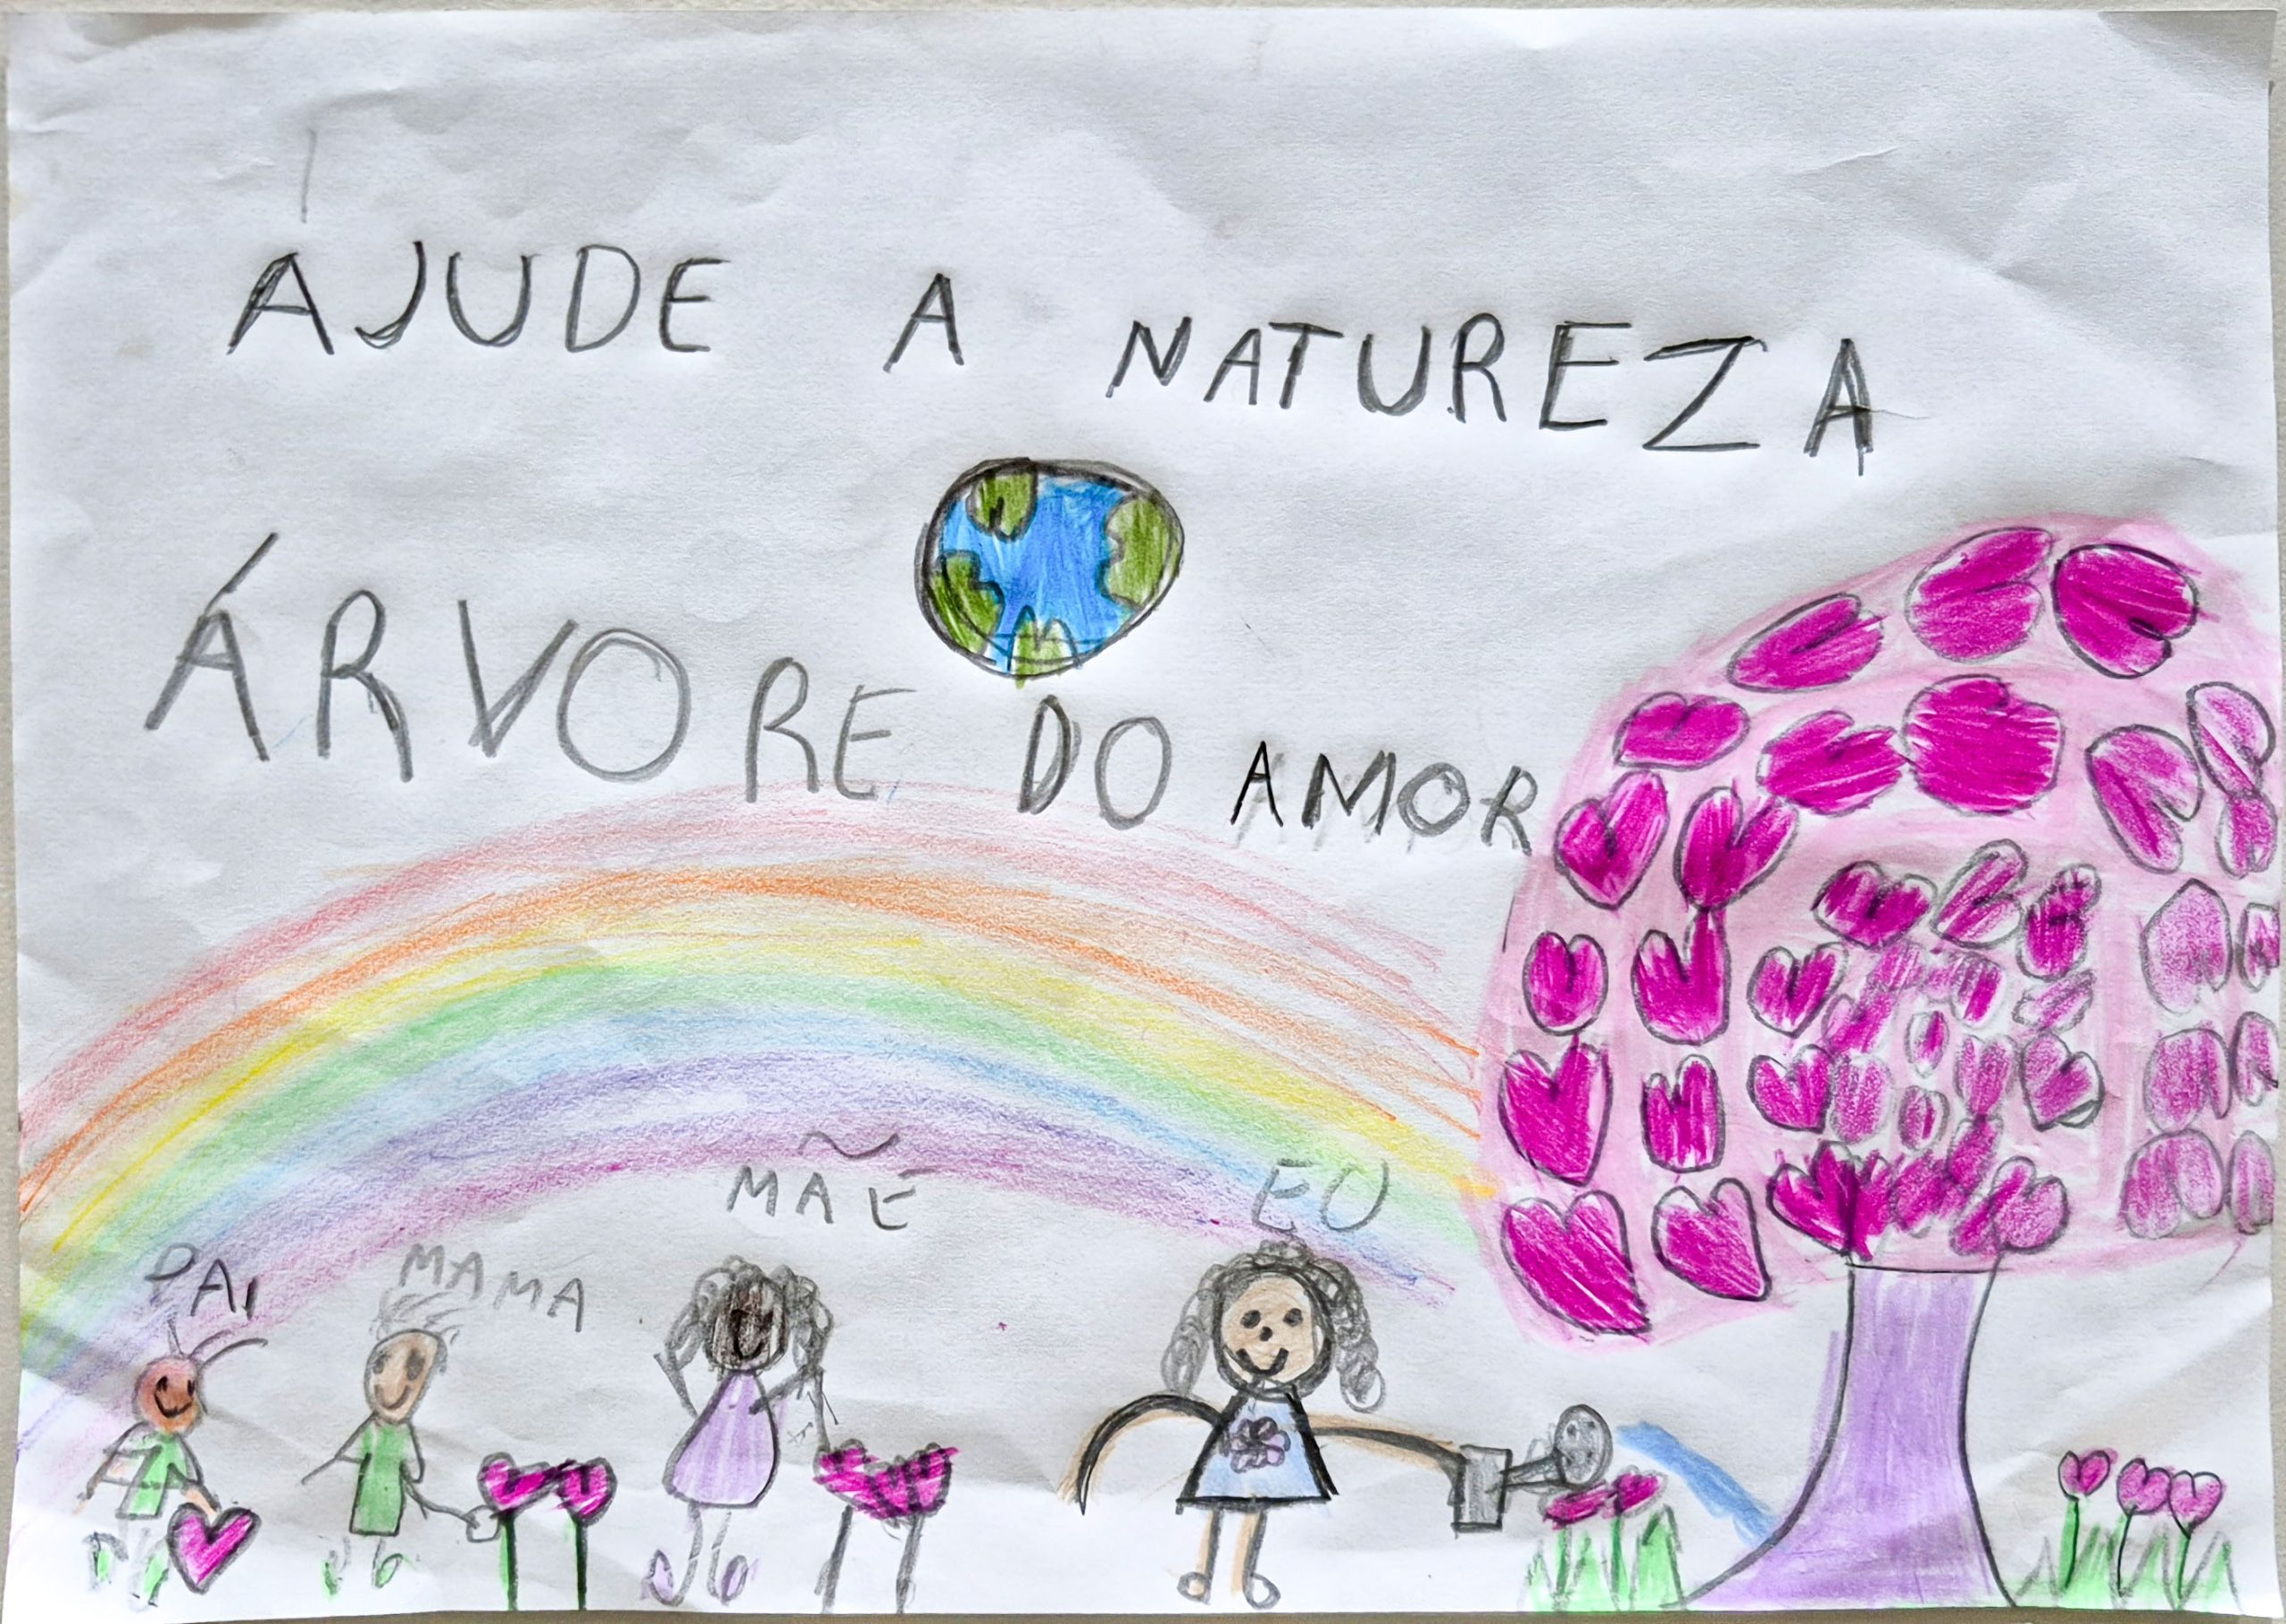 AJUDE A NATUREZA
ÁRVORE DO AMOR
MÃE EU
PAI MAMA